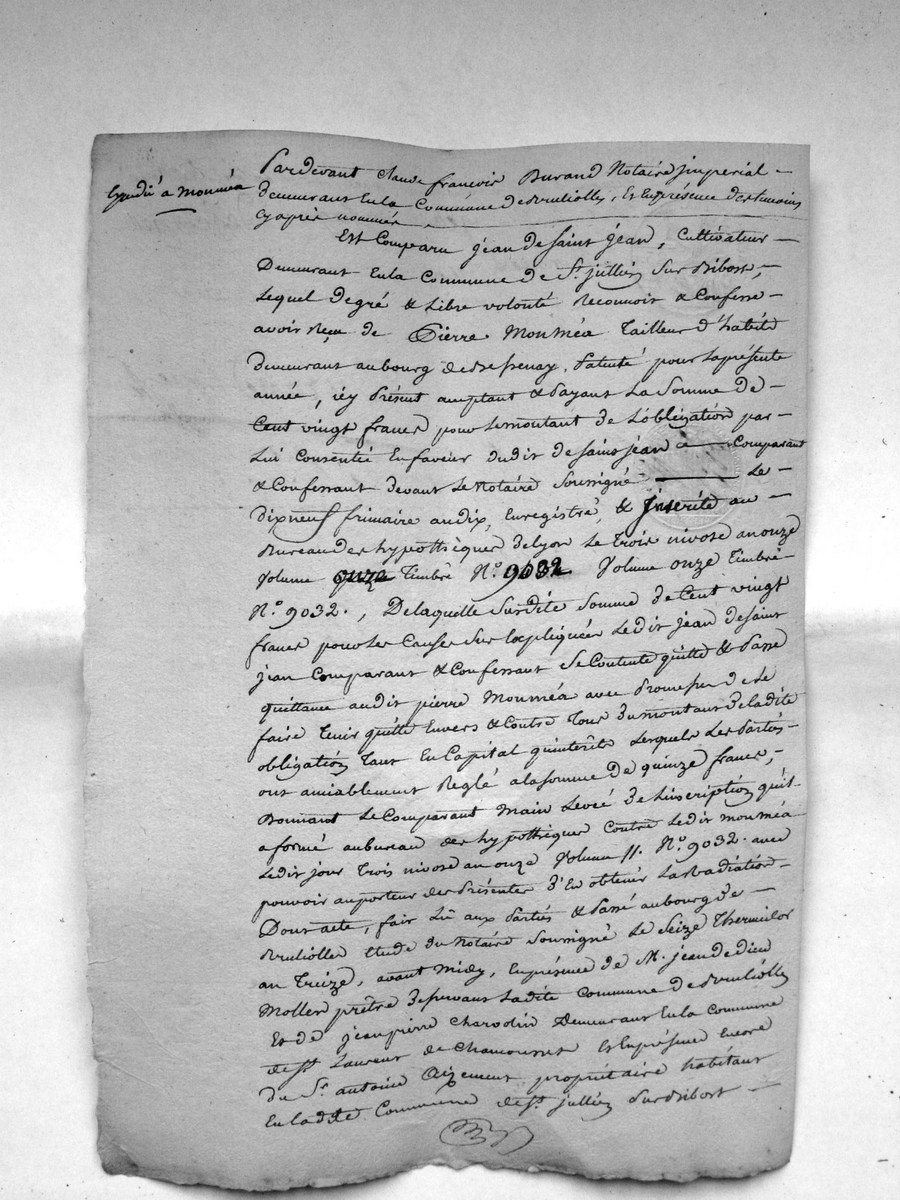 Expédié a Mouméa
Pardevant Claude françois Durand Notaire Jmperial -
demeurant En la Commune de Brulliolle, Et En présence des temoins
cy après nommés
Est Comparu jean de saint jean, Cultivateur -
Demeurant En la Commune de St. jullien Sur Bibost, -
Lequel de gré & Libre volonté Reconnoit & Confesse -
avoir Reçu de Pierre Mouméa Tailleur d'habits
demeurant au bourg de Bessenay, Patenté pour La présente
année, icy Présent acceptant & Payant La Somme de -
Cent vingt francs pour Le montant de L'obligation par -
Lui Consentie En faveur dudit de saint jean Comparant
& Confessant devant Le Notaire Soussigné Le -
dix neuf frimaire an dix, Enregistré, & Jnscrité au -
Bureau des hypothèques de Lyon Le Trois nivose an onze
Volume onze Timbré No. 9032 Volume onze Timbré -
No. 9032., De laquelle Surdite Somme de Cent vingt
francs pour Les Causes Sus Expliquées Ledit jean de saint
jean Comparant & Confessant Se Contente quitte & Passe
quittance audit pierre Mouméa avec Promesse de Le
faire Tenir quitte Envers & Contre Tous du montant de ladite
obligation Tant En Capital qu'intérêts Lesquels Les Parties -
ont amiablement Reglé a la somme de quinze francs, -
Donnant Le Comparant Main Levée de L'inscription qu'il -
a formé au bureau des hypothèques Contre Ledit mouméa
Ledit jour Trois nivose an onze Volume 11. No. 9032. avec
pouvoir au porteur des Présentes d'En obtenir La Radiation -
Dont acte, fait Lû aux Parties & Passé au bourg de -
Brulliolle Etude du Notaire Soussigné Le Seize Thermidor
an Treize, avant midy, En présence de M. jean de dieu
Mollen prêtre desservant Ladite Commune de Brulliolle
Et de jean pierre Charvolin Demeurant En la Commune
de St. Laurent de Chamousset Et En présence Encore
du Sr. antoine propriétaire habitant
En ladite Commune de St. jullien Sur Bibost -